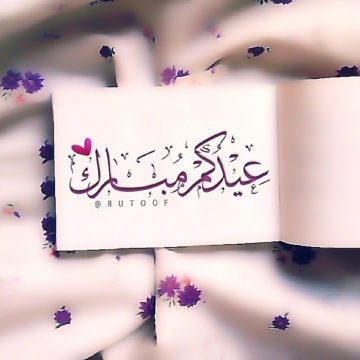 عِيْدُكُمْ مُبَارَك
@8UTOOF